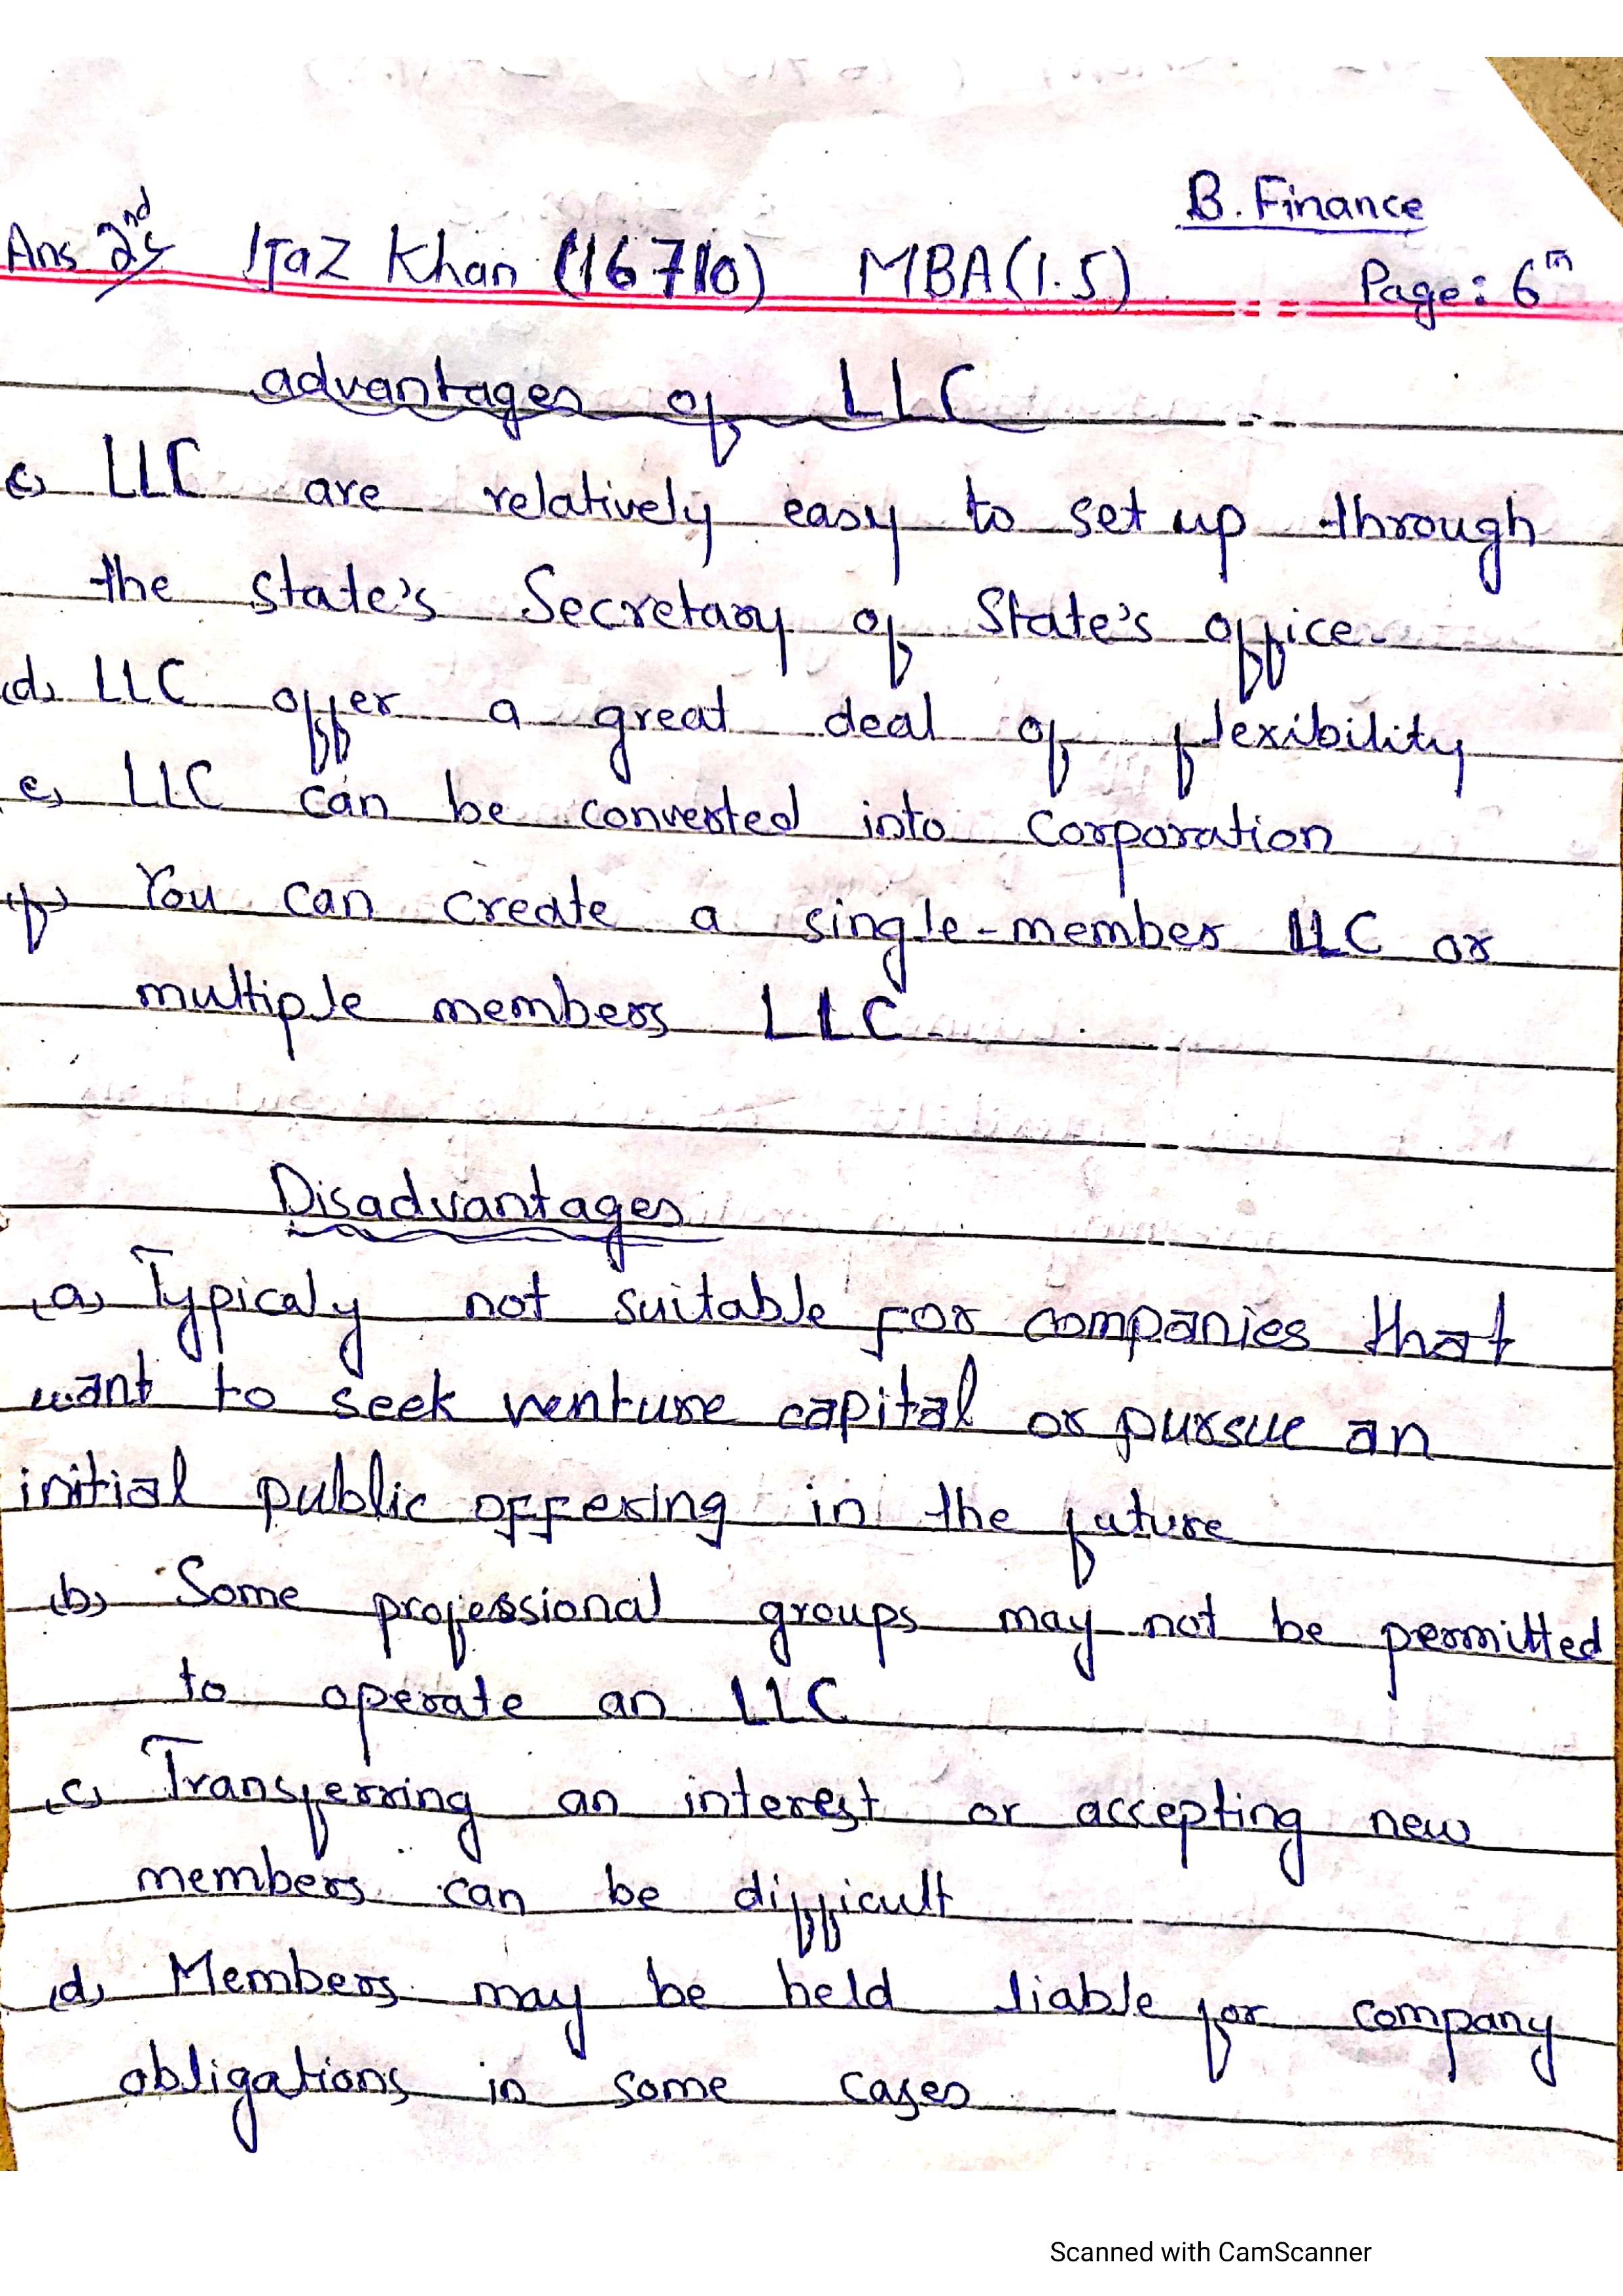 B. Finance
Ans 2nd Ijaz Khan (16710) MBA(1.5) Page: 6th
advantages of LLC
(c) LLC are relatively easy to set up through
the state's Secretary of State's office.
(d) LLC offer a great deal of flexibility
(e) LLC can be converted into corporation
(f) You can create a single-member LLC or
multiple members LLC
Disadvantages
(a) Typicaly not suitable for companies that
want to seek venture capital or pursue an
initial public offering in the future
(b) Some professional groups may not be permitted
to operate an LLC
(c) Transferring an interest or accepting new
members can be difficult
(d) Members may be held liable for company
obligations in some cases
Scanned with CamScanner